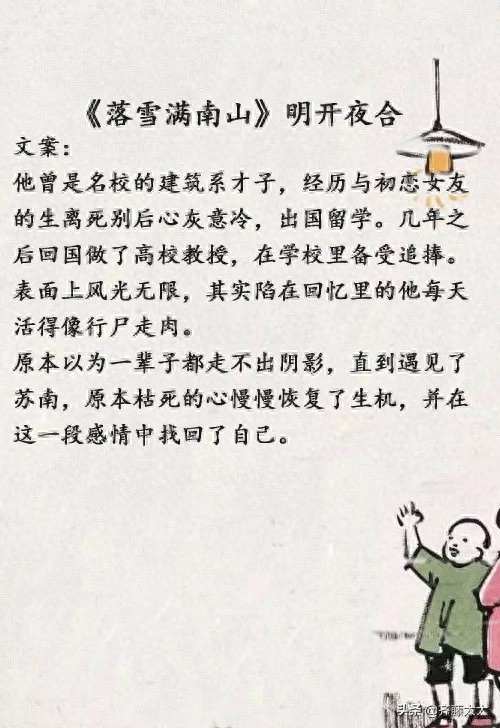 《落雪满南山》明开夜合
文案：
他曾是名校的建筑系才子，经历与初恋女友
的生离死别后心灰意冷，出国留学。几年之
后回国做了高校教授，在学校里备受追捧。
表面上风光无限，其实陷在回忆里的他每天
活得像行尸走肉。
原本以为一辈子都走不出阴影，直到遇见了
苏南，原本枯死的心慢慢恢复了生机，并在
这一段感情中找回了自己。
头条 @斉藤太太